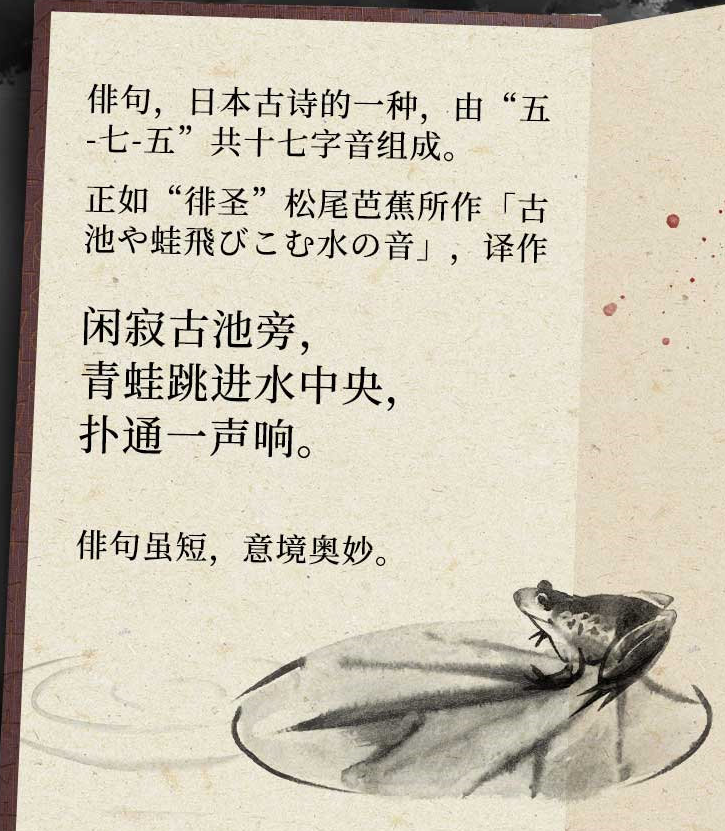 俳句，日本古诗的一种，由“五
-七-五”共十七字音组成。
正如“徘圣”松尾芭蕉所作「古
池や蛙飛びこむ水の音」，译作
闲寂古池旁，
青蛙跳进水中央，
扑通一声响。
俳句虽短，意境奥妙。